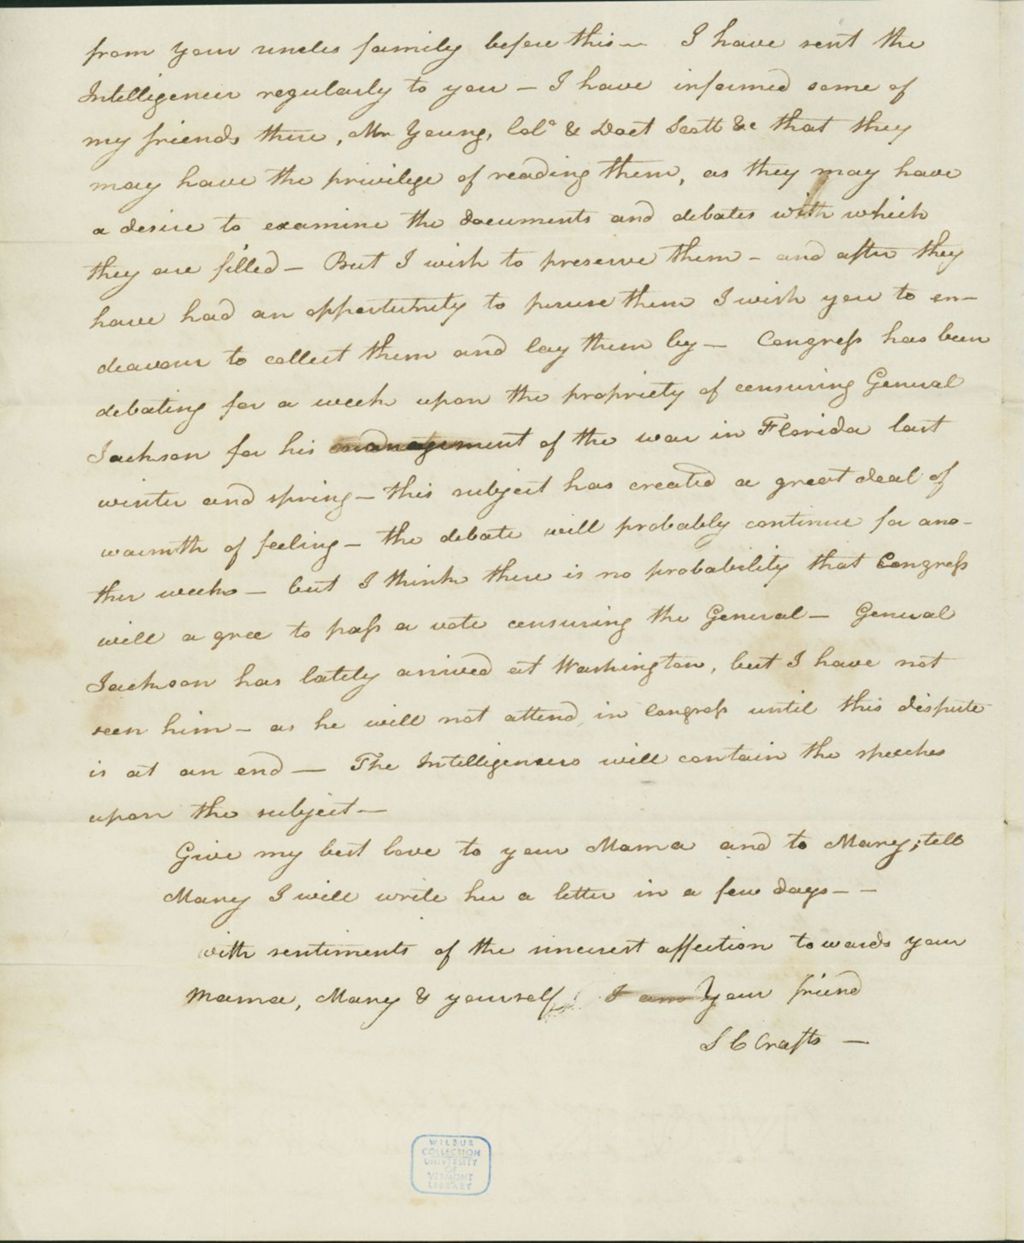 from your uncles family before this — I have sent the
Intelligencer regularly to you — I have informed some of
my friends there, Mr Young, Colo & Doct Scott &c that they
may have the privilege of reading them, as they may have
a desire to examine the documents and debates with which
they are filled — But I wish to preserve them — and after they
have had an opportunity to peruse them I wish you to en-
deavour to collect them and lay them by — Congress has been
debating for a week upon the propriety of censuring General
Jackson for his management of the war in Florida last
winter and spring — this subject has created a great deal of
warmth of feeling — the debate will probably continue for ano-
ther week — but I think there is no probability that Congress
will agree to pass a vote censuring the General — General
Jackson has lately arrived at Washington, but I have not
seen him — as he will not attend in Congress until this dispute
is at an end — The Intelligencers will contain the speeches
upon the subject —
Give my best love to your Mama and to Mary; tell
Mary I will write her a letter in a few days — —
with sentiments of the sincerest affection towards your
Mama, Mary & yourself I am Your friend
S C Crafts —
WILBUR
COLLECTION
UNIVERSITY
OF
VERMONT
LIBRARY